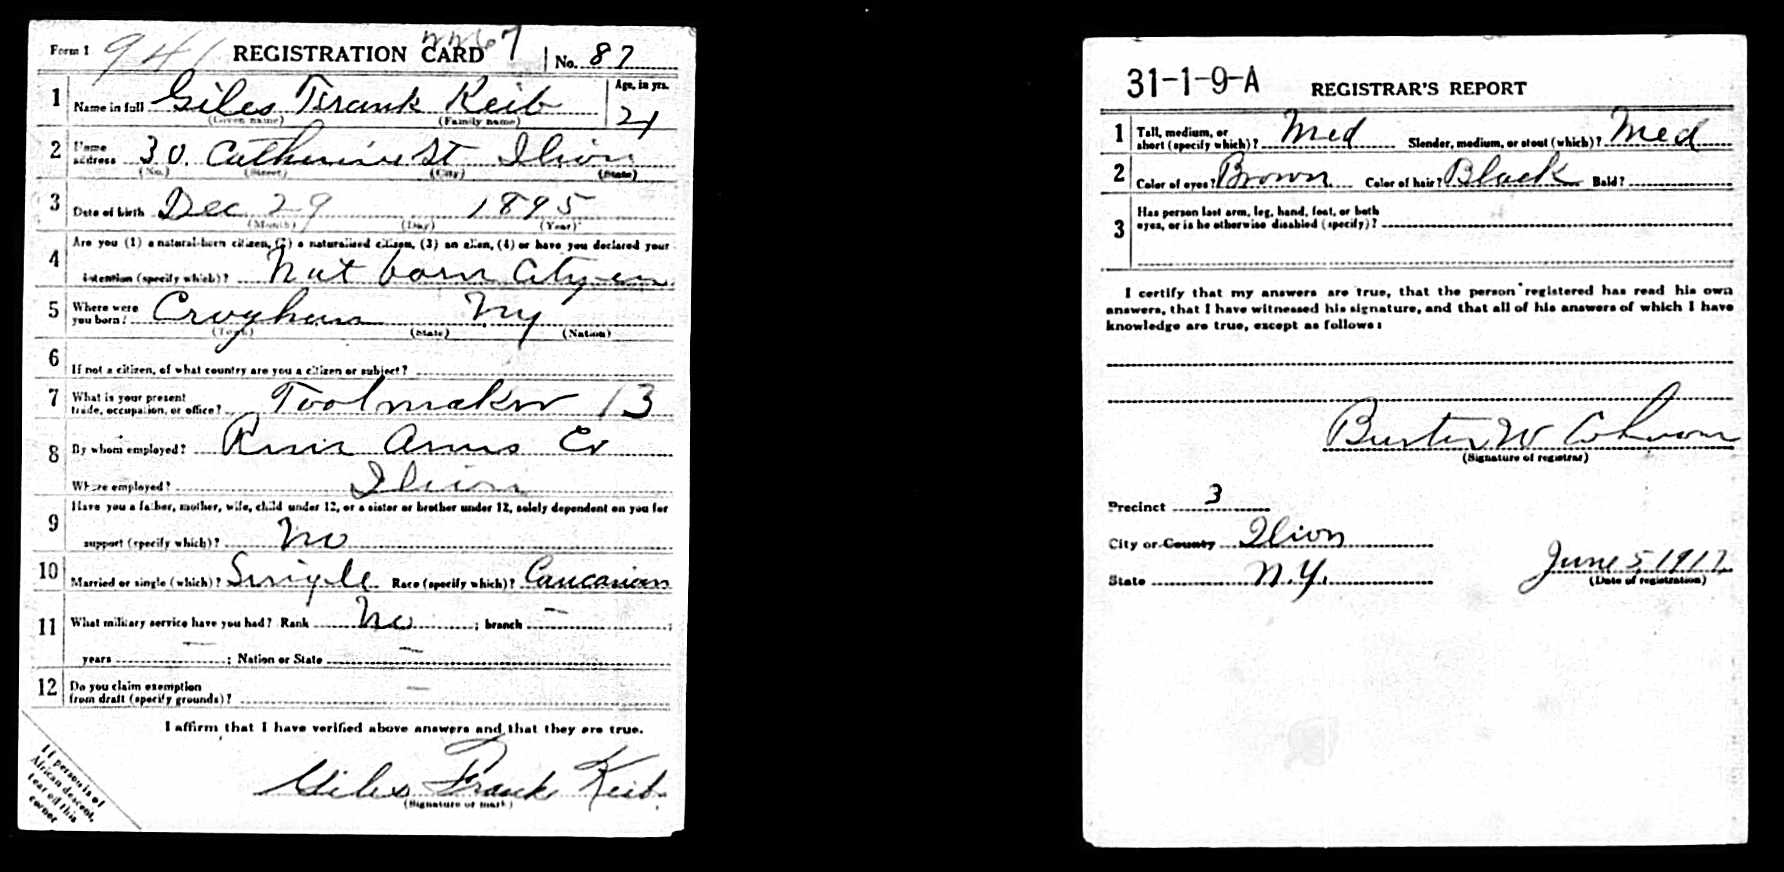 Form 1 941 REGISTRATION CARD 2267 No. 87
1 Name in full Giles Frank Keib Age, in yrs.
(Given name) (Family name) 21
2 Home address 30 Catherine St Ilion
(No.) (Street) (City) (State)
3 Date of birth Dec 29 1895
(Month) (Day) (Year)
4 Are you (1) a natural-born citizen, (2) a naturalized citizen, (3) an alien, (4) or have you declared your
intention (specify which)? Nat born Cityzen
5 Where were you born? Croghan NY
(Town) (State) (Nation)
6 If not a citizen, of what country are you a citizen or subject?
7 What is your present
trade, occupation, or office? Toolmaker 13
8 By whom employed? Rem Arms Co
Where employed? Ilion
9 Have you a father, mother, wife, child under 12, or a sister or brother under 12, solely dependent on you for
support (specify which)? No
10 Married or single (which)? Single Race (specify which)? Caucasian
11 What military service have you had? Rank No ; branch — ;
years — ; Nation or State —
12 Do you claim exemption
from draft (specify grounds)? —
I affirm that I have verified above answers and that they are true.
Giles Frank Keib
(Signature or mark)
If person is of
African descent,
tear off this
corner
31-1-9-A REGISTRAR'S REPORT
1 Tall, medium, or
short (specify which)? Med Slender, medium, or stout (which)? Med
2 Color of eyes? Brown Color of hair? Black Bald?
3 Has person lost arm, leg, hand, foot, or both
eyes, or is he otherwise disabled (specify)?
I certify that my answers are true, that the person registered has read his own
answers, that I have witnessed his signature, and that all of his answers of which I have
knowledge are true, except as follows:
W
(Signature of registrar)
Precinct 3
City or County Ilion
State N.Y. June 5, 1917
(Date of registration)